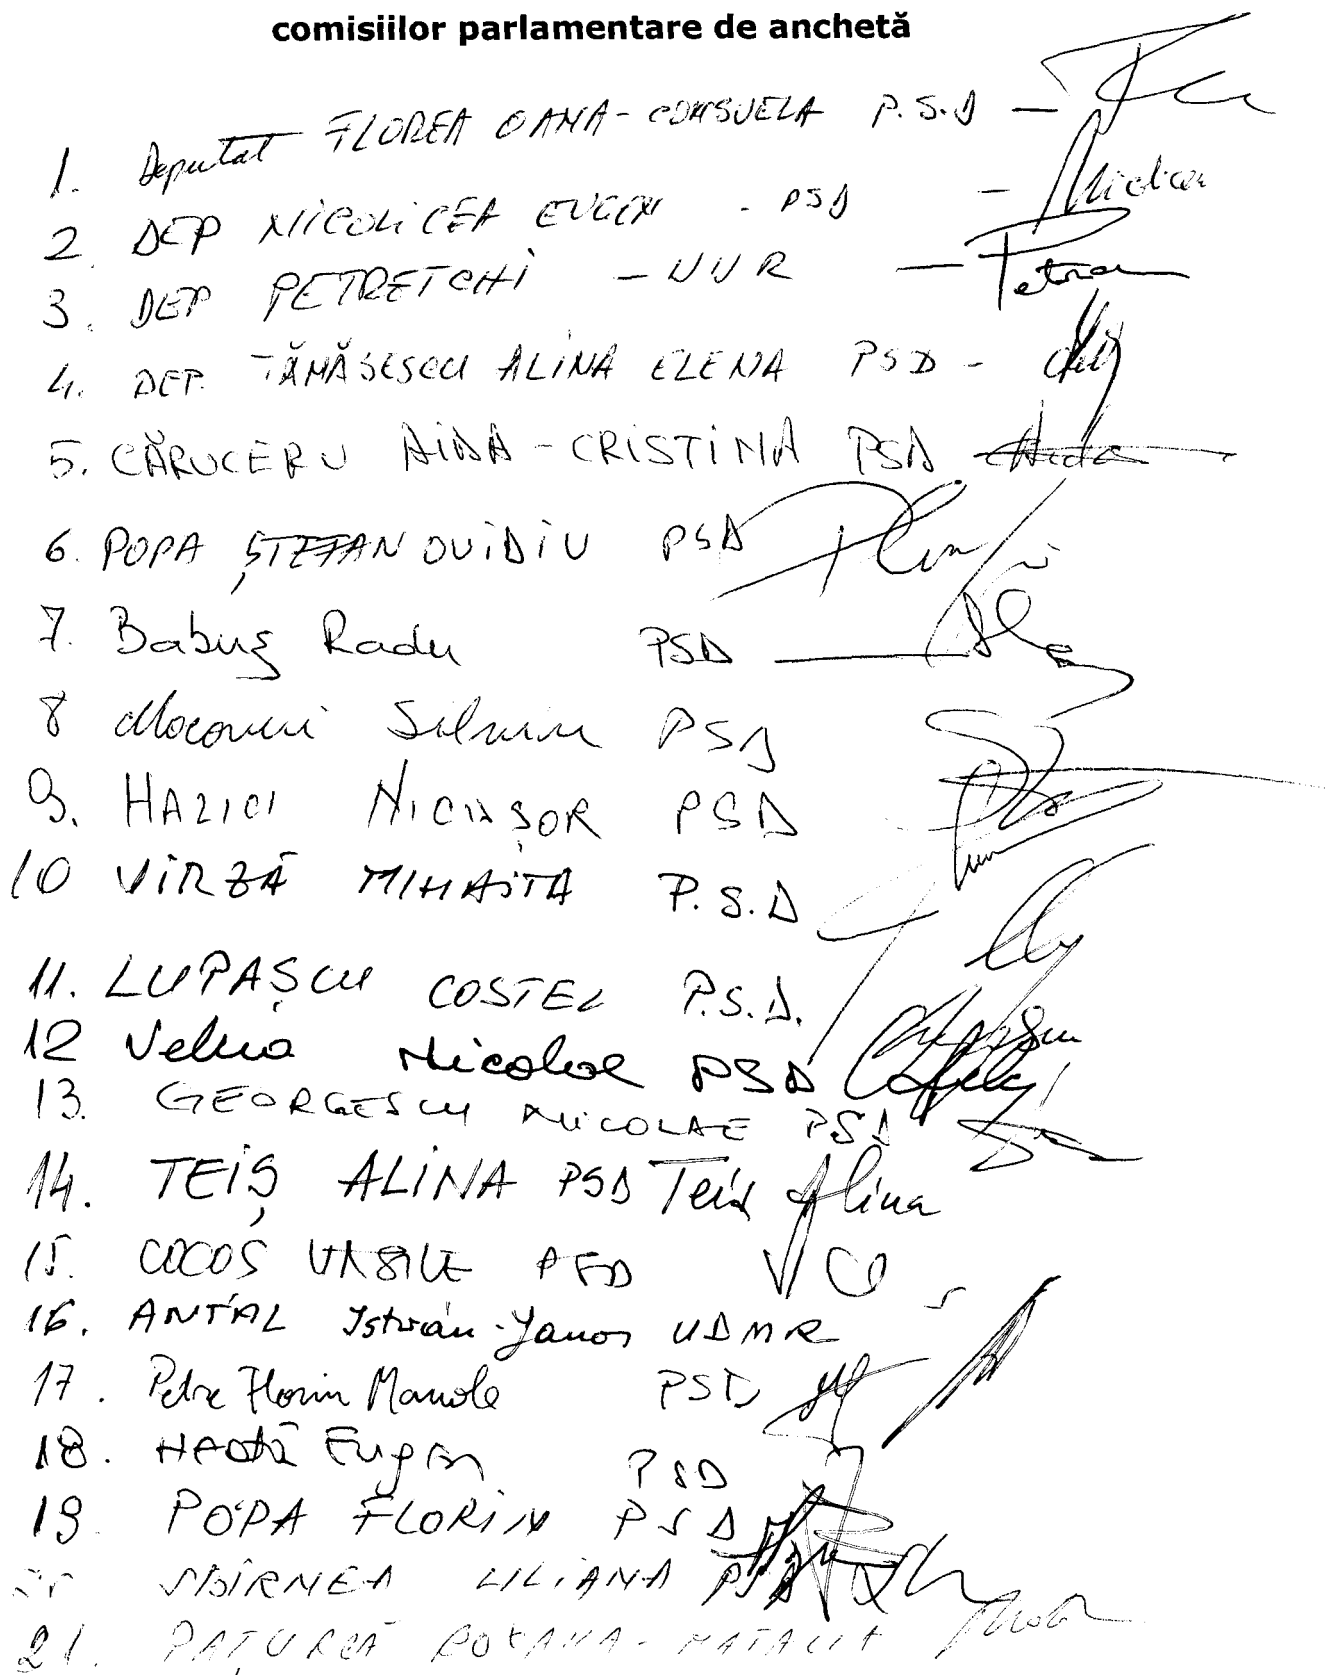 comisiilor parlamentare de anchetă
1. Deputat FLOREA OANA-CONSUELA P.S.D -
2. DEP NICOLICEA EUGEN - PSD -
3. DEP PETRETCHI - UUR - Petre
4. DEP. TĂNĂSESCU ALINA ELENA PSD -
5. CĂRUCERU AIDA-CRISTINA PSD Aida
6. POPA ȘTEFAN OVIDIU PSD
7. Babuș Radu PSD
8 Mocanu Silviu PSD
9. HAZICI NICUȘOR PSD
10 VÎRZĂ MIHĂIȚĂ P.S.D
11. LUPAȘCU COSTEL P.S.D.
12 Velcea Nicolae PSD
13. GEORGESCU NICOLAE PSD
14. TEIȘ ALINA PSD Teiș Alina
15. COCOS VASILE PSD
16. ANTAL István-János UDMR
17. Petre Florin Manole PSD
18. Eugen PSD
19 POPA FLORIN PSD
SBÎRNEA LILIANA PSD
21. PAȚURCĂ ROXANA-NATALIA